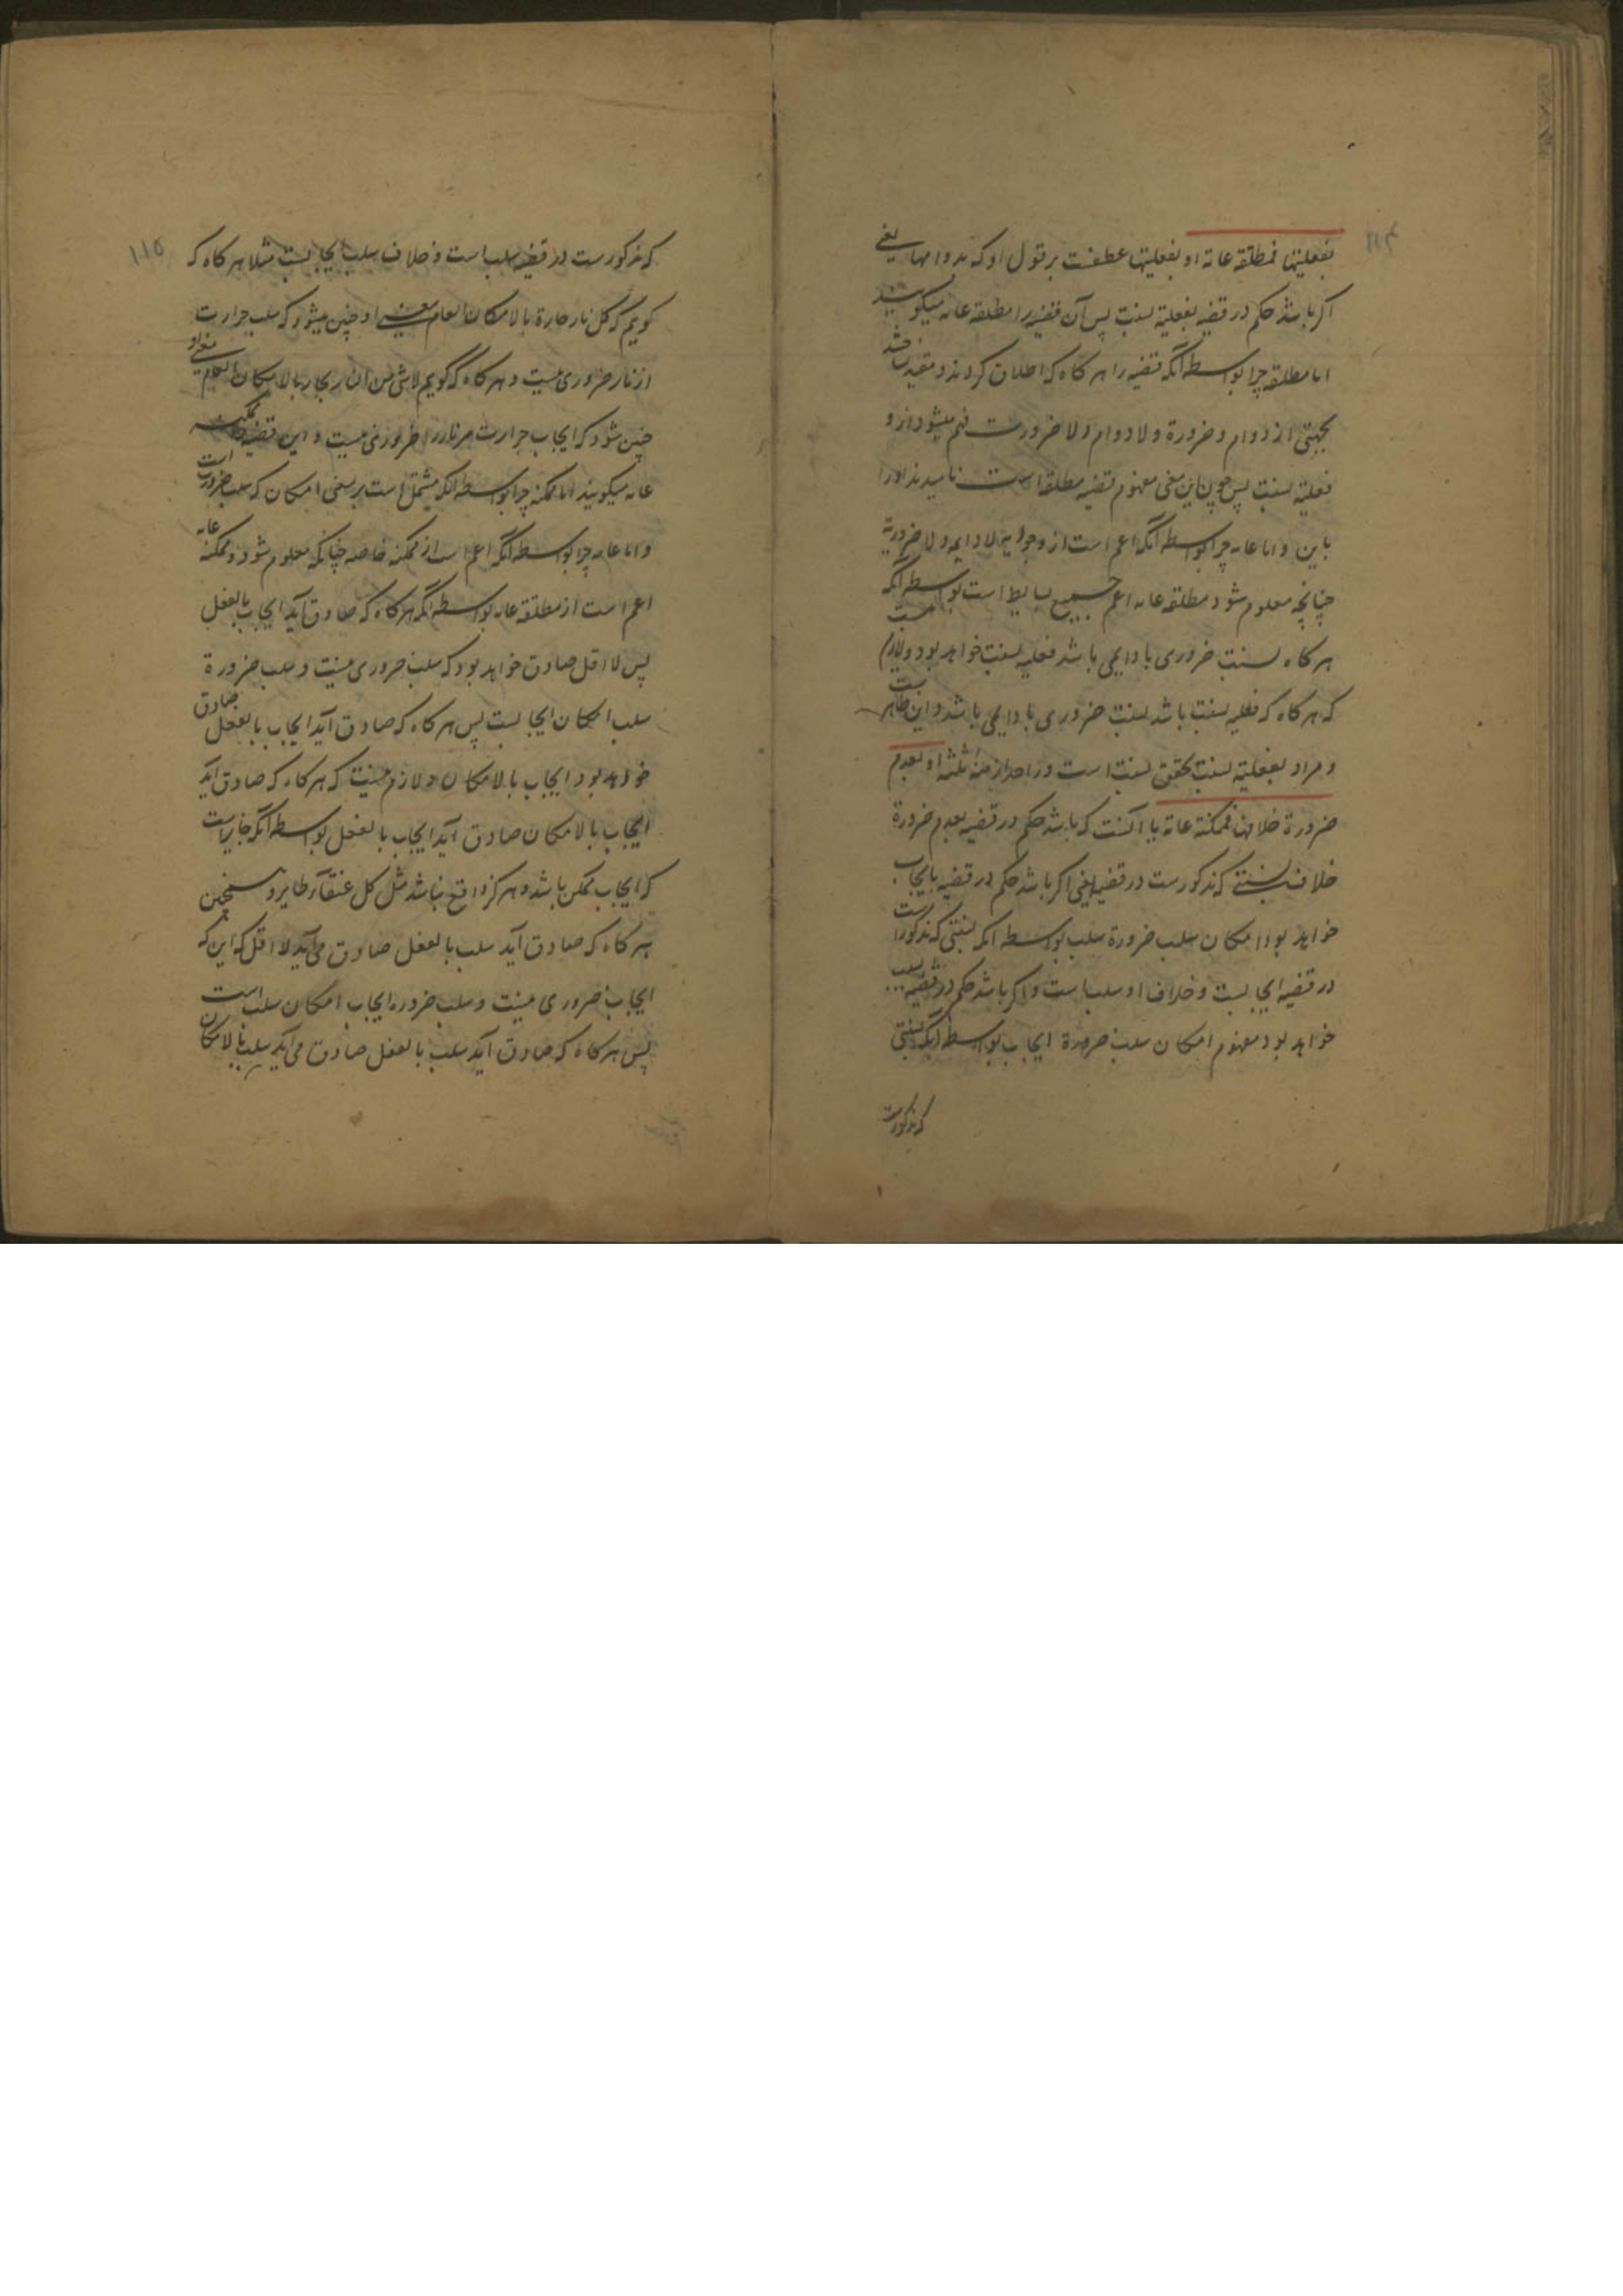 ۱۱۴
بفعلیتها فمطلقة عامة او بفعلیتها عطفست بر قول او که بدوامها یعنی
اکر باشد حکم در قضیه بفعلیة نسبت پس آن قضیه را مطلقه عامه میکویند
اما مطلقه چرا بواسطه آنکه قضیه را هر کاه که اطلاق کردند و مقید نباشد
بجهتی از دوام و ضرورة و لا دوام و لا ضرورت فهم میشود ازو
فعلیة نسبت پس چون این معنی مفهوم قضیه مطلقه است نامیدند او را
باین و اما عامه چرا بواسطه آنکه اعم است از وجودیه لا دایمه و لا ضروریة
چنانچه معلوم شود و مطلقه عامه اعم جمیع بسایط است بواسطه آنکه
هر کاه نسبت ضروری یا دایمی باشد فعلیه نسبت خواهد بود و لازم نیست
که هر کاه که فعلیه نسبت باشد نسبت ضروری یا دایمی باشد و این ظاهر است
و مراد بفعلیة نسبت تحقق نسبت است در احد ازمنه ثلثه او بعدم
ضرورة خلافها فممکنة عامة یا آنست که باشد حکم در قضیه بعدم ضرورة
خلاف نسبتی که مذکورست در قضیه یعنی اکر باشد حکم در قضیه بایجاب
خواهد بود امکان سلب ضرورة سلب بواسطه آنکه نسبتی که مذکورست
در قضیه ایجابست و خلاف او سلب است و اکر باشد حکم در قضیه بسلب
خواهد بود مفهوم امکان سلب ضرورة ایجاب بواسطه آنکه نسبتی
که مذکورست
۱۱۵
که مذکورست در قضیه سلب است و خلاف سلب ایجابست مثلا هر کاه که
کویم که کل نار حارة بالامکان العام معنی او چنین میشود که سلب حرارت
از نار ضروری نیست و هر کاه که کویم لا شی من النار بحار بالامکان العام معنی او
چنین شود که ایجاب حرارت مر نار را ضروری نیست و این قضیه را ممکنه
عامه میکویند اما ممکنه چرا بواسطه آنکه مشتمل است بر معنی امکان که سلب ضرورت است
و اما عامه چرا بواسطه آنکه اعم است از ممکنه خاصه چنانکه معلوم شود و ممکنه عامه
اعم است از مطلقه عامه بواسطه آنکه هر کاه که صادق آید ایجاب بالفعل
پس لا اقل صادق خواهد بود که سلب ضروری نیست و سلب ضرورة
سلب امکان ایجابست پس هر کاه که صادق آید ایجاب بالفعل صادق
خواهد بود ایجاب بالامکان و لازم نیست که هر کاه که صادق آید
ایجاب بالامکان صادق آید ایجاب بالفعل بواسطه آنکه جایز است
که ایجاب ممکن باشد و هرکز واقع نباشد مثل کل عنقاء طایر و همچنین
هر کاه که صادق آید سلب بالفعل صادق می آید لا اقل که این که
ایجاب ضروری نیست و سلب ضروره ایجاب امکان سلب است
پس هر کاه که صادق آید سلب بالفعل صادق می آید سلب بالامکان